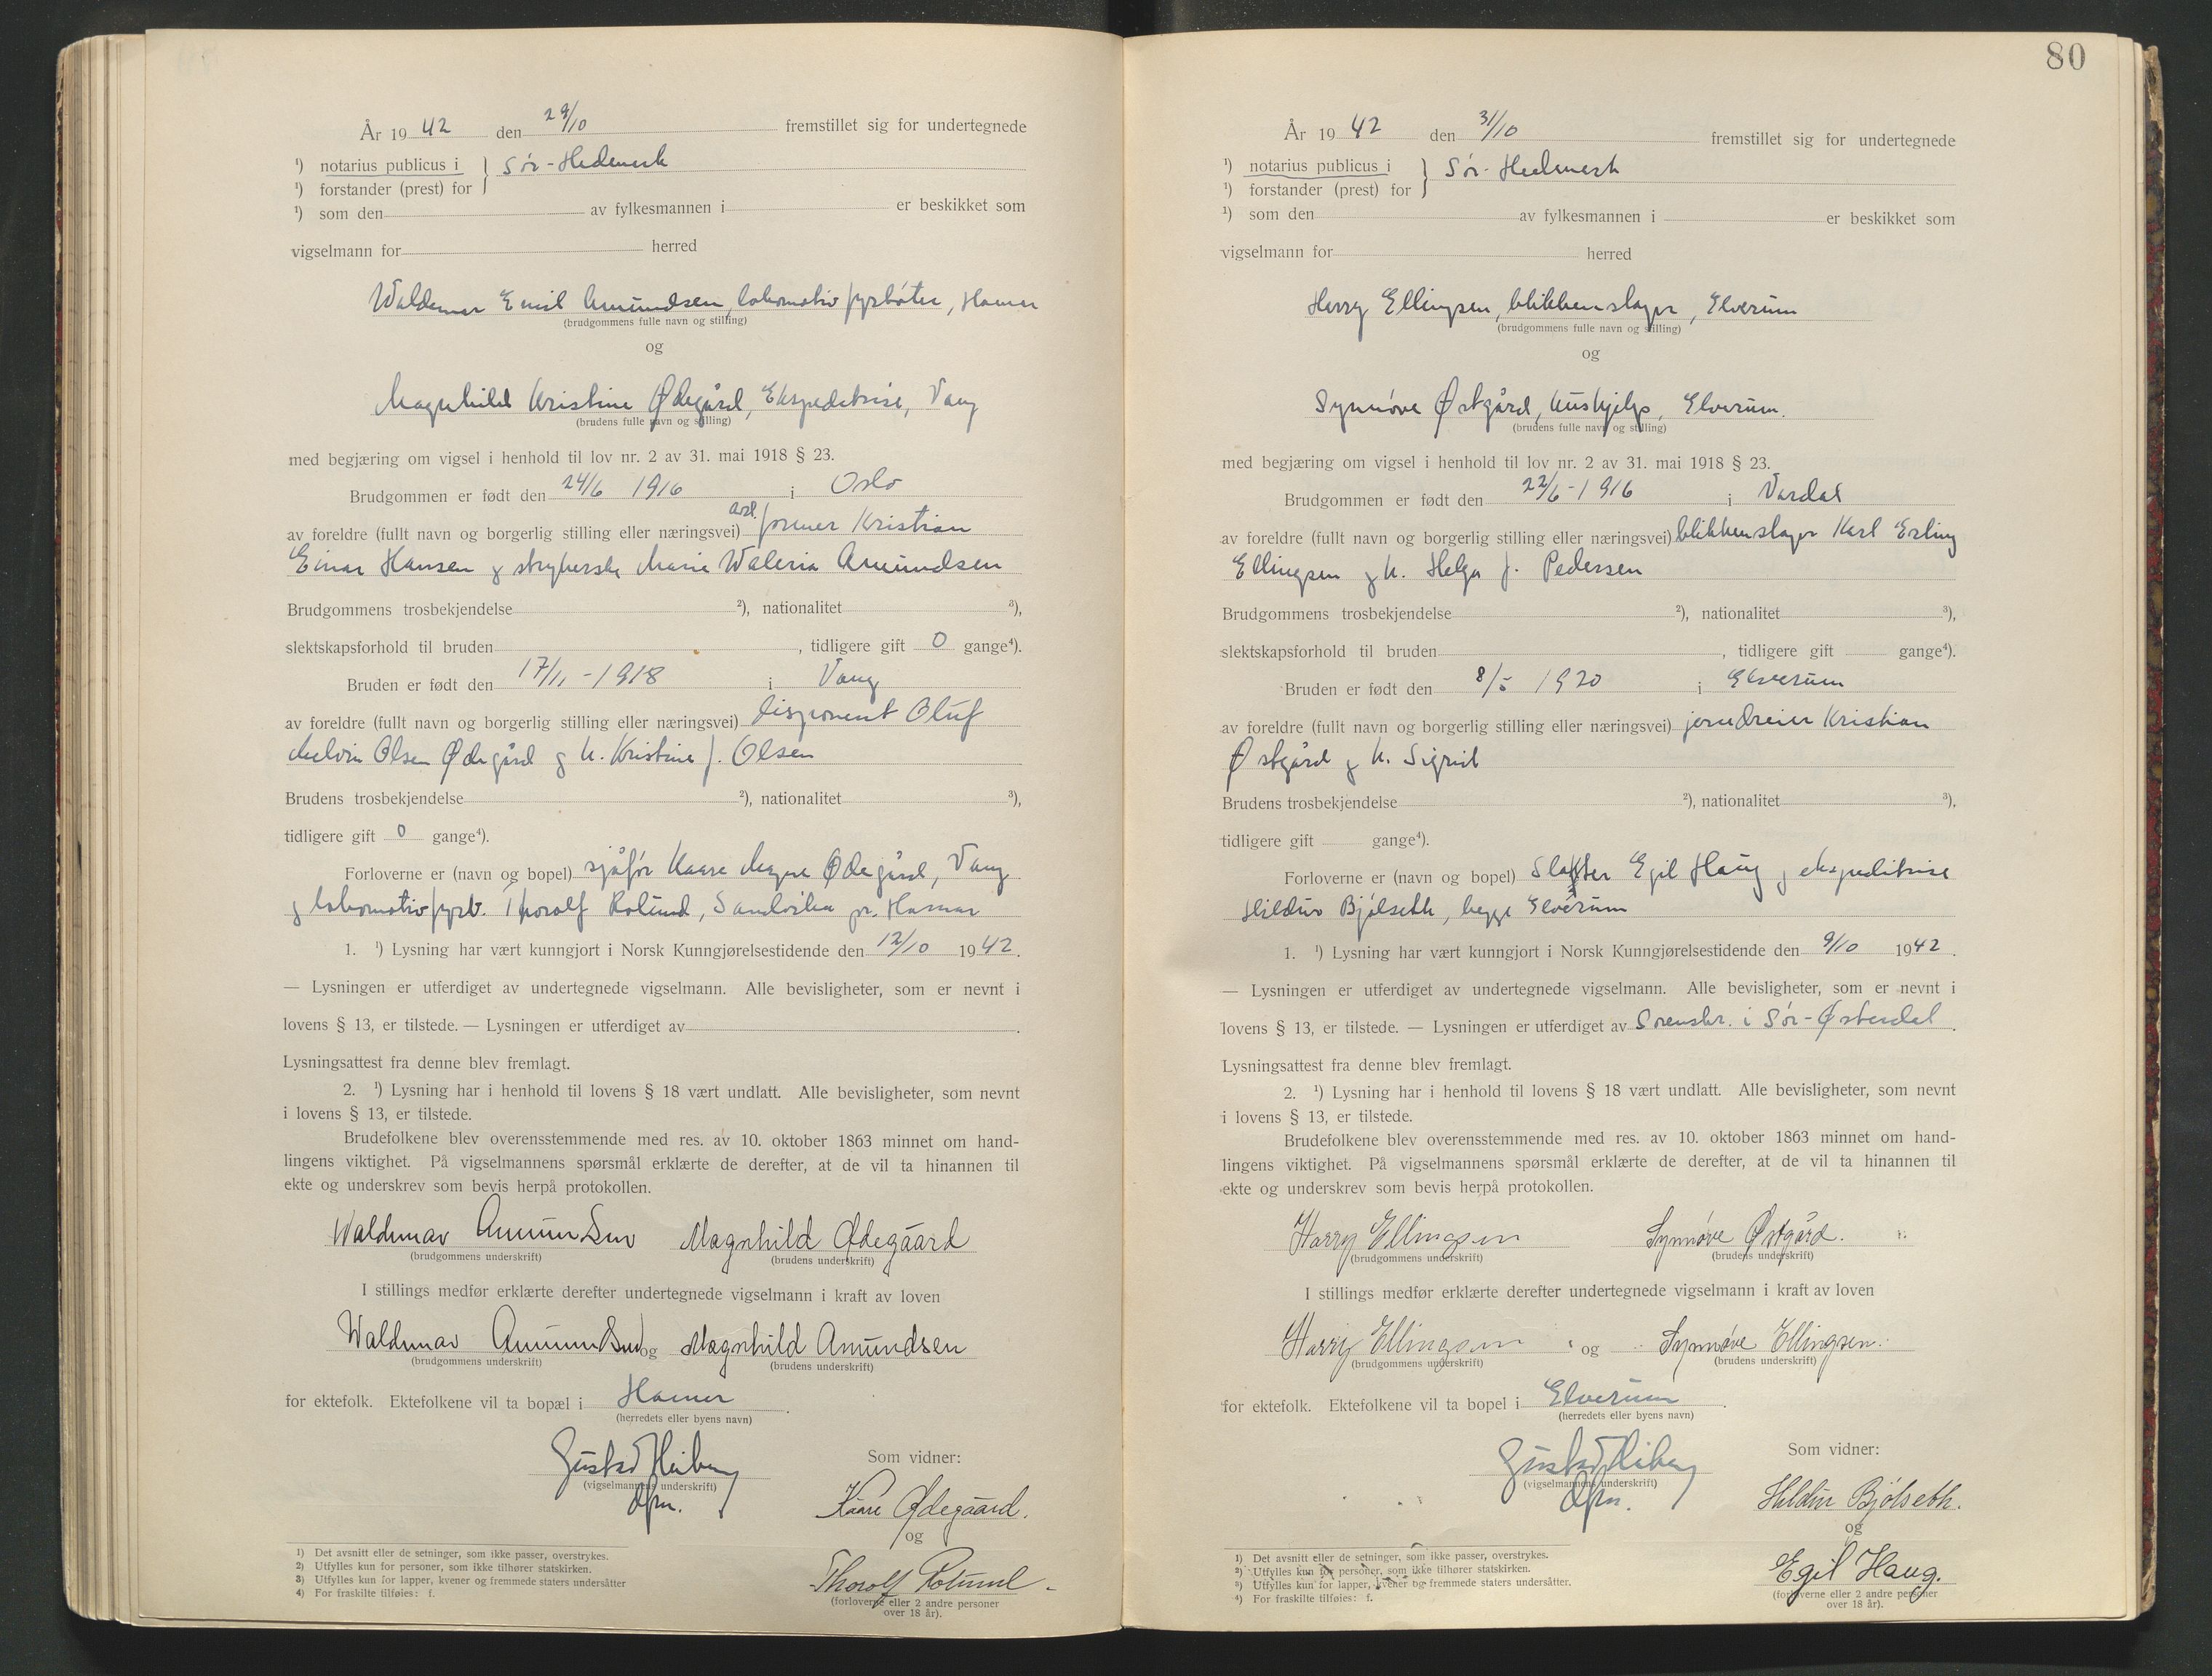 År 19 42 den 29/10 fremstillet sig for undertegnede
¹) notarius publicus i } Sør-Hedemark
¹) forstander (prest) for
¹) som den av fylkesmannen i er beskikket som
vigselmann for herred
Waldemar Emil Amundsen, lokomotivfyrbøter, Hamar
(brudgommens fulle navn og stilling)
og
Magnhild Kristine Ødegård, Ekspeditrise, Vang
(brudens fulle navn og stilling)
med begjæring om vigsel i henhold til lov nr. 2 av 31. mai 1918 § 23.
Brudgommen er født den 24/6 1916 i Oslo
av foreldre (fullt navn og borgerlig stilling eller næringsvei) avd. former Kristian
Einar Hansen og strykerske Marie Waleria Amundsen
Brudgommens trosbekjendelse ²), nationalitet ³),
slektskapsforhold til bruden , tidligere gift 0 gange⁴).
Bruden er født den 17/11 - 1918 i Vang
av foreldre (fullt navn og borgerlig stilling eller næringsvei) disponent Oluf
Melvin Olsen Ødegård og h. Kristine f. Olsen
Brudens trosbekjendelse ²), nationalitet ³),
tidligere gift 0 gange⁴).
Forloverne er (navn og bopel) sjåfør Kaare Magne Ødegård, Vang
og lokomotivfyrb. Thorolf Rolund, Sandvika pr. Hamar
1. ¹) Lysning har vært kunngjort i Norsk Kunngjørelsestidende den 12/10 1942.
— Lysningen er utferdiget av undertegnede vigselmann. Alle bevisligheter, som er nevnt i
lovens § 13, er tilstede. — Lysningen er utferdiget av .
Lysningsattest fra denne blev fremlagt.
2. ¹) Lysning har i henhold til lovens § 18 vært undlatt. Alle bevisligheter, som nevnt
i lovens § 13, er tilstede.
Brudefolkene blev overensstemmende med res. av 10. oktober 1863 minnet om hand-
lingens viktighet. På vigselmannens spørsmål erklærte de derefter, at de vil ta hinannen til
ekte og underskrev som bevis herpå protokollen.
Waldemar Amundsen Magnhild Ødegaard
(brudgommens underskrift) (brudens underskrift)
I stillings medfør erklærte derefter undertegnede vigselmann i kraft av loven
Waldemar Amundsen og Magnhild Amundsen
(brudgommens underskrift) (brudens underskrift)
for ektefolk. Ektefolkene vil ta bopæl i Hamar .
(herredets eller byens navn)
Gustav Heiberg
(vigselmannens underskrift)
dfm.
Som vidner:
Kaare Ødegaard.
og
Thorolf Rolund
(forloverne eller 2 andre personer
over 18 år).
1) Det avsnitt eller de setninger, som ikke passer, overstrykes.
2) Utfylles kun for personer, som ikke tilhører statskirken.
3) Utfylles kun for lapper, kvener og fremmede staters undersåtter
4) For fraskilte tilføies: f.
80
År 19 42 den 31/10 fremstillet sig for undertegnede
¹) notarius publicus i } Sør-Hedmark
¹) forstander (prest) for
¹) som den av fylkesmannen i er beskikket som
vigselmann for herred
Harry Ellingsen, blikkenslager, Elverum
(brudgommens fulle navn og stilling)
og
Synnøve Østgård, hushjelp, Elverum.
(brudens fulle navn og stilling)
med begjæring om vigsel i henhold til lov nr. 2 av 31. mai 1918 § 23.
Brudgommen er født den 22/6 - 1916 i Vardal
av foreldre (fullt navn og borgerlig stilling eller næringsvei) blikkenslager Karl Erling
Ellingsen og h. Helga f. Pedersen
Brudgommens trosbekjendelse ²), nationalitet ³),
slektskapsforhold til bruden , tidligere gift gange⁴).
Bruden er født den 8/5 1920 i Elverum
av foreldre (fullt navn og borgerlig stilling eller næringsvei) jerndreier Kristian
Østgård og h. Sigrid
Brudens trosbekjendelse ²), nationalitet ³),
tidligere gift gange⁴).
Forloverne er (navn og bopel) Slakter Egil Haug og ekspeditrise
Hildur Bjølseth, begge Elverum
1. ¹) Lysning har vært kunngjort i Norsk Kunngjørelsestidende den 9/10 1942.
— Lysningen er utferdiget av undertegnede vigselmann. Alle bevisligheter, som er nevnt i
lovens § 13, er tilstede. — Lysningen er utferdiget av Sorenskr. i Sør-Østerdal.
Lysningsattest fra denne blev fremlagt.
2. ¹) Lysning har i henhold til lovens § 18 vært undlatt. Alle bevisligheter, som nevnt
i lovens § 13, er tilstede.
Brudefolkene blev overensstemmende med res. av 10. oktober 1863 minnet om hand-
lingens viktighet. På vigselmannens spørsmål erklærte de derefter, at de vil ta hinannen til
ekte og underskrev som bevis herpå protokollen.
Harry Ellingsen Synnøve Østgård.
(brudgommens underskrift) (brudens underskrift)
I stillings medfør erklærte derefter undertegnede vigselmann i kraft av loven
Harry Ellingsen og Synnøve Ellingsen.
(brudgommens underskrift) (brudens underskrift)
for ektefolk. Ektefolkene vil ta bopel i Elverum .
(herredets eller byens navn)
Gustav Heiberg
(vigselmannens underskrift)
dfm.
Som vidner:
Hildur Bjølseth.
og
Egil Haug.
(forloverne eller 2 andre personer
over 18 år).
1) Det avsnitt eller de setninger, som ikke passer, overstrykes.
2) Utfylles kun for personer, som ikke tilhører statskirken.
3) Utfylles kun for lapper, kvener og fremmede staters undersåtter.
4) For fraskilte tilføies: f.